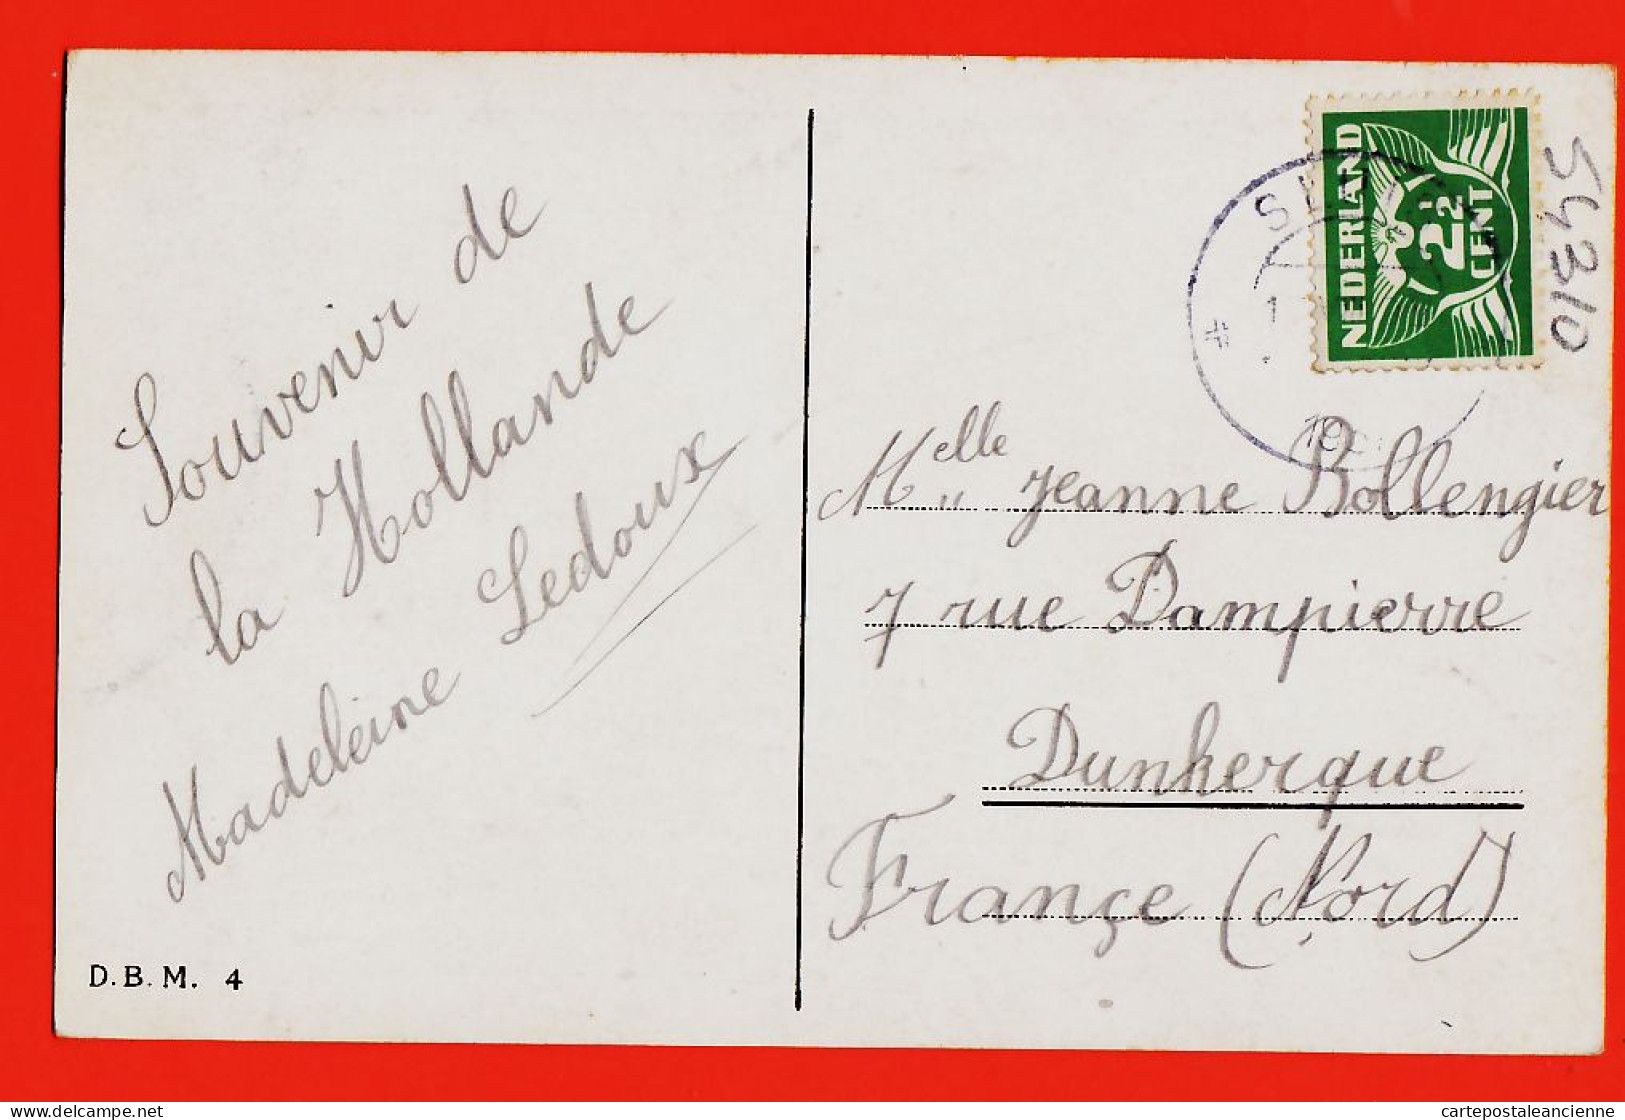 Souvenir de
la Hollande
Madeleine Ledoux
D.B.M. 4
NEDERLAND
2½
CENT
54310
Melle Jeanne Bollengier
7 rue Dampierre
Dunkerque
France (Nord)
delcampe.net
cartepostaleancienne